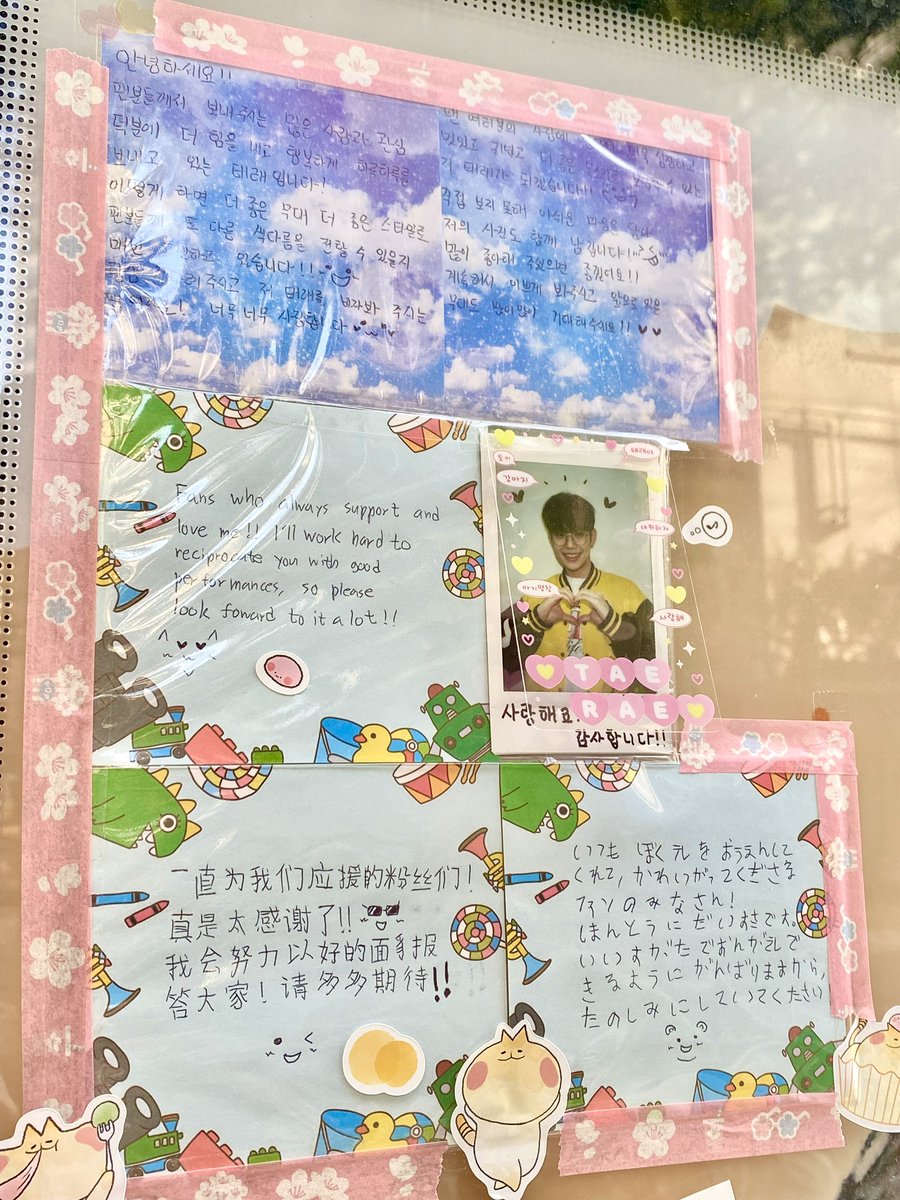 안녕하세요!!
팬분들께서 보내주시는 많은 사랑과 관심
덕분에 더 힘을 내고 행복하게 하루하루를
보내고 있는 태래입니다!
어떻게 하면 더 좋은 무대 더 좋은 스타일로
팬분들께 또 다른 색다름을 전할 수 있을지
매번 있습니다!!
주시고 저 태래를 바라봐 주시는
너무 너무 사랑합니다
팬 여러분의 사랑에
멋있고 귀엽고 더 좋은 수 있는
각 태래가 되겠습니다!!
직접 보지 못해 아쉬운 마음을 담아
저의 사진도 함께 남깁니다!
많이 좋아해 주셨으면 좋겠어요!!
계속해서 이쁘게 봐주시고 앞으로 있을
무대도 많이많이 기대해주세요!!
Fans who always support and
love me!! I'll work hard to
reciprocate you with good
performances, so please
look foward to it a lot!!
토끼
강아지
태래야
아기명창
사랑해
TAE
RAE
사랑해요.
감사합니다!!
一直为我们应援的粉丝们!
真是太感谢了!!
我会努力以好的面貌报
答大家! 请多多期待!!
いつも ぼくえを おうえんして
くれて, かわいがってくださる
ファンのみなさん!
ほんとうに だいすきです.
いいすがたでおんがえしで
きるように がんばりますから,
たのしみにしていてください